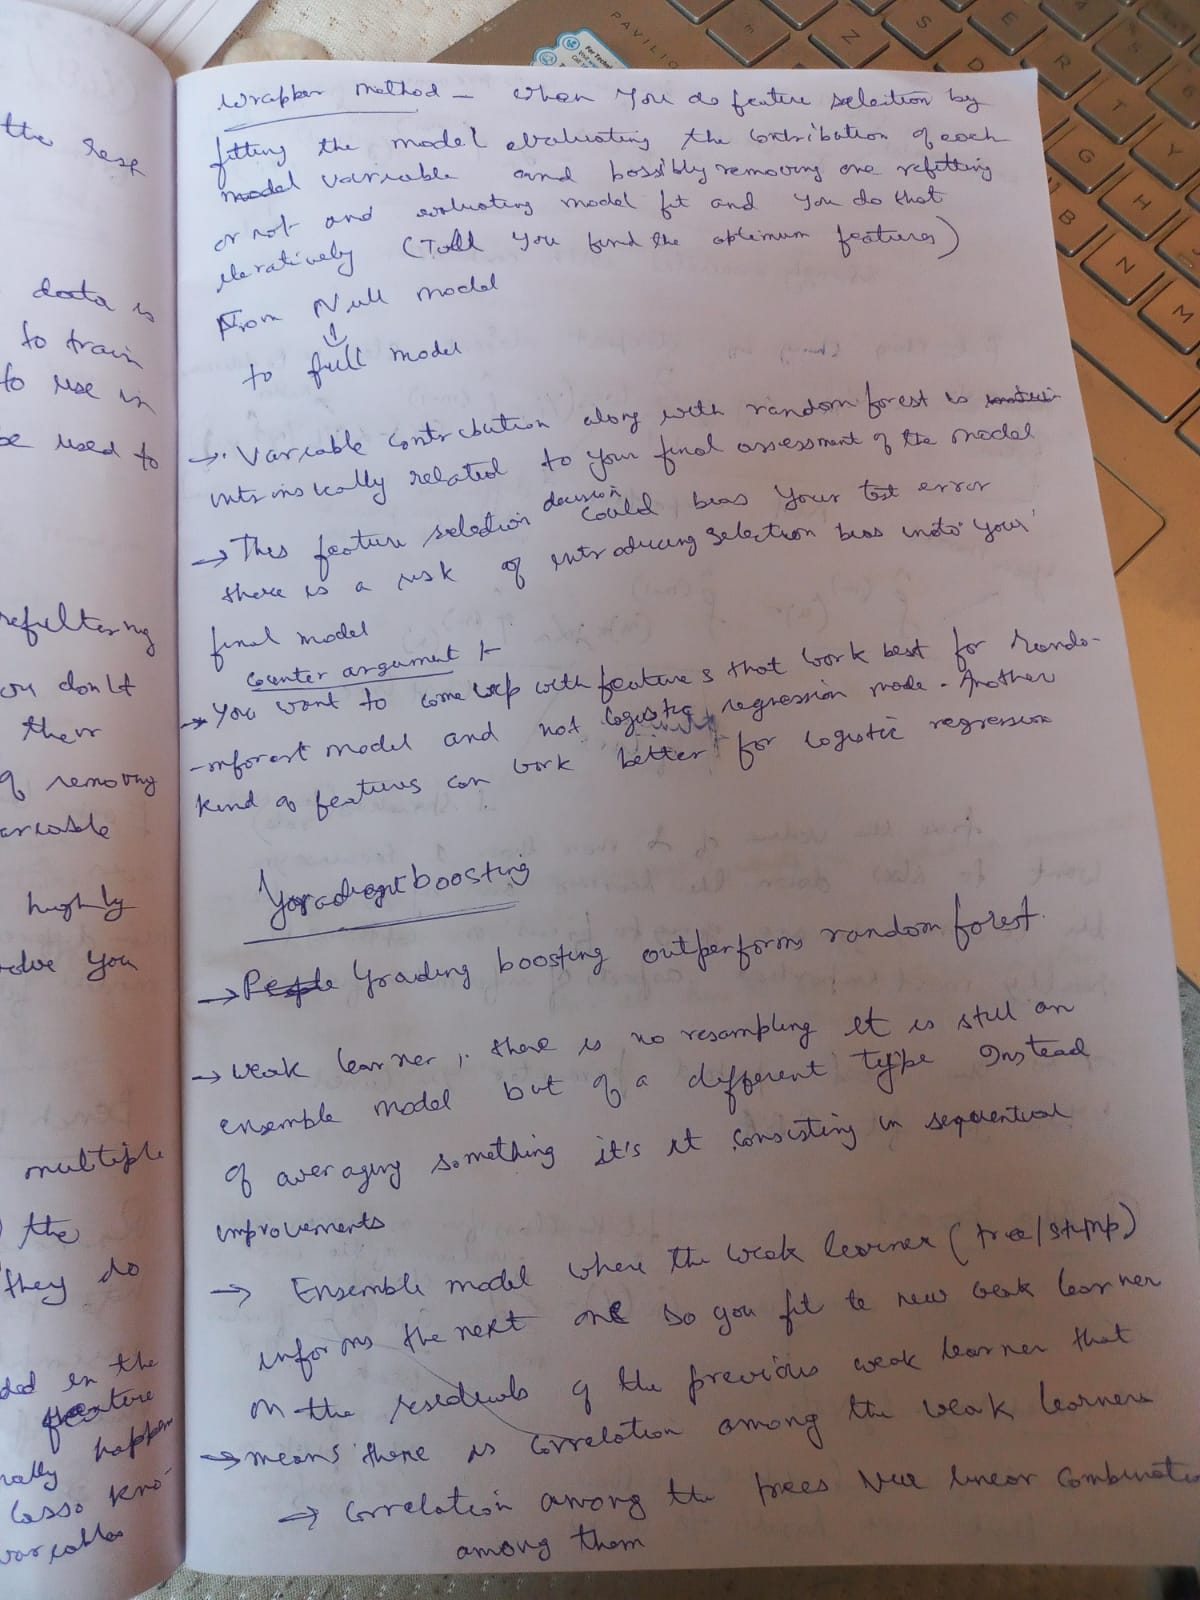 the rese
data is
to train
to use in
be used to
refiltering
you don't
their
of removing
variable
highly
solve you
multiple
the
they do
ded in the
feature
nally happen
Lasso kno-
variables
PAVILIO
Wrapper method - when you do feature selection by
fitting the model evaluating the contribution of each
model variable and possibly removing one refitting
or not and evaluating model fit and you do that
iteratively (Till you find the optimum features)
From Null model
↓
to full model
→. Variable contribution along with random forest is
intrinsically related to your final assessment of the model
→ This feature selection decision could bias your test error
there is a risk of introducing selection bias into your
final model
counter argument :-
→ You want to come up with features that work best for rando-
-mforest model and not logistic regression mode. Another
kind of features can work better for logistic regression
Gradient boosting
→ People Grading boosting outperforms random forest.
→ weak learner, there is no resampling It is still an
ensemble model but of a different type Instead
of averaging something it's it consisting in sequential
improvements
→ Ensemble model where the weak learner (tree/stump)
informs the next one so you fit te new weak learner
on the residuals of the previous weak learner that
→ means there is correlation among the weak learners
→ Correlation among the trees linear combinatio
among them